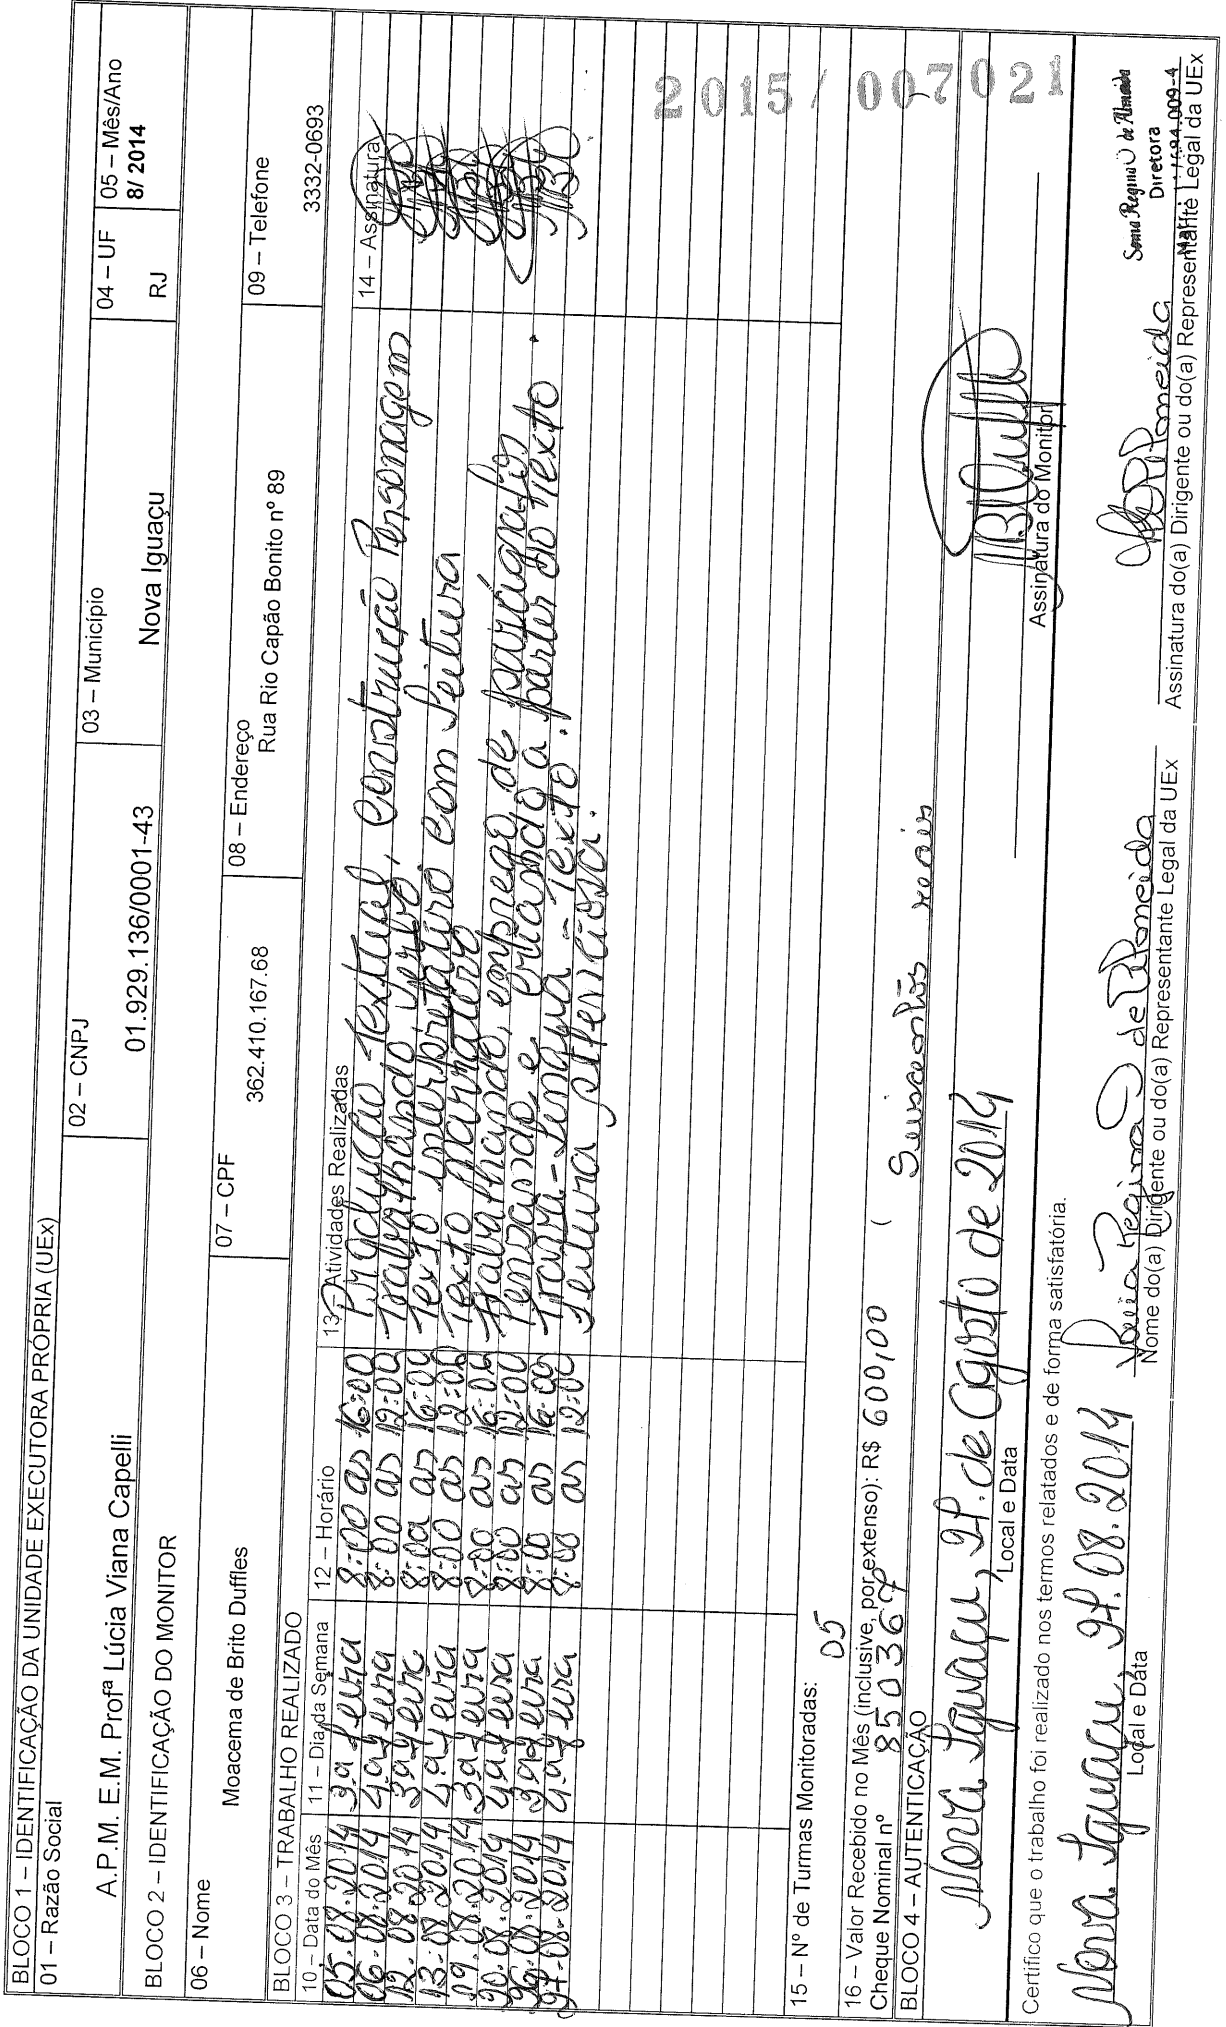 BLOCO 1 – IDENTIFICAÇÃO DA UNIDADE EXECUTORA PRÓPRIA (UEx)
01 – Razão Social
A.P.M. E.M. Profª Lúcia Viana Capelli
02 – CNPJ
01.929.136/0001-43
03 – Município
Nova Iguaçu
04 – UF
RJ
05 – Mês/Ano
8/ 2014
BLOCO 2 – IDENTIFICAÇÃO DO MONITOR
06 – Nome
Moacema de Brito Duffles
07 – CPF
362.410.167.68
08 – Endereço
Rua Rio Capão Bonito nº 89
09 – Telefone
3332-0693
BLOCO 3 – TRABALHO REALIZADO
10 – Data do Mês 11 – Dia da Semana 12 – Horário 13 – Atividades Realizadas 14 – Assinatura
05.08.2014 3ª feira 8:00 as 16:00 Produção textual, construção Personagem
06.08.2014 4ª feira 8:00 as 12:00 Trabalhando verbo,
12.08.2014 3ª feira 8:00 as 16:00 Texto interpretativo com leitura
13.08.2014 4ª feira 8:00 as 12:00 Texto narrativo
19.08.2014 3ª feira 8:00 as 16:00 Trabalhando emprego de parágrafos
20.08.2014 4ª feira 8:00 as 12:00 Pensando e criando a partir do texto.
26.08.2014 3ª feira 8:00 as 16:00 Trava-língua - Texto.
27.08.2014 4ª feira 8:00 as 12:00 Leitura silenciosa.
15 – Nº de Turmas Monitoradas:
05
16 – Valor Recebido no Mês (inclusive, por extenso): R$ 600,00 ( Seiscentos reais
Cheque Nominal nº 850367
BLOCO 4 – AUTENTICAÇÃO
2015/ 007021
Nova Iguaçu, 27 de Agosto de 2014
Local e Data
Assinatura do Monitor
Certifico que o trabalho foi realizado nos termos relatados e de forma satisfatória.
Nova Iguaçu, 27.08.2014
Local e Data
Nome do(a) Dirigente ou do(a) Representante Legal da UEx
Diretora
Assinatura do(a) Dirigente ou do(a) Representante Legal da UEx